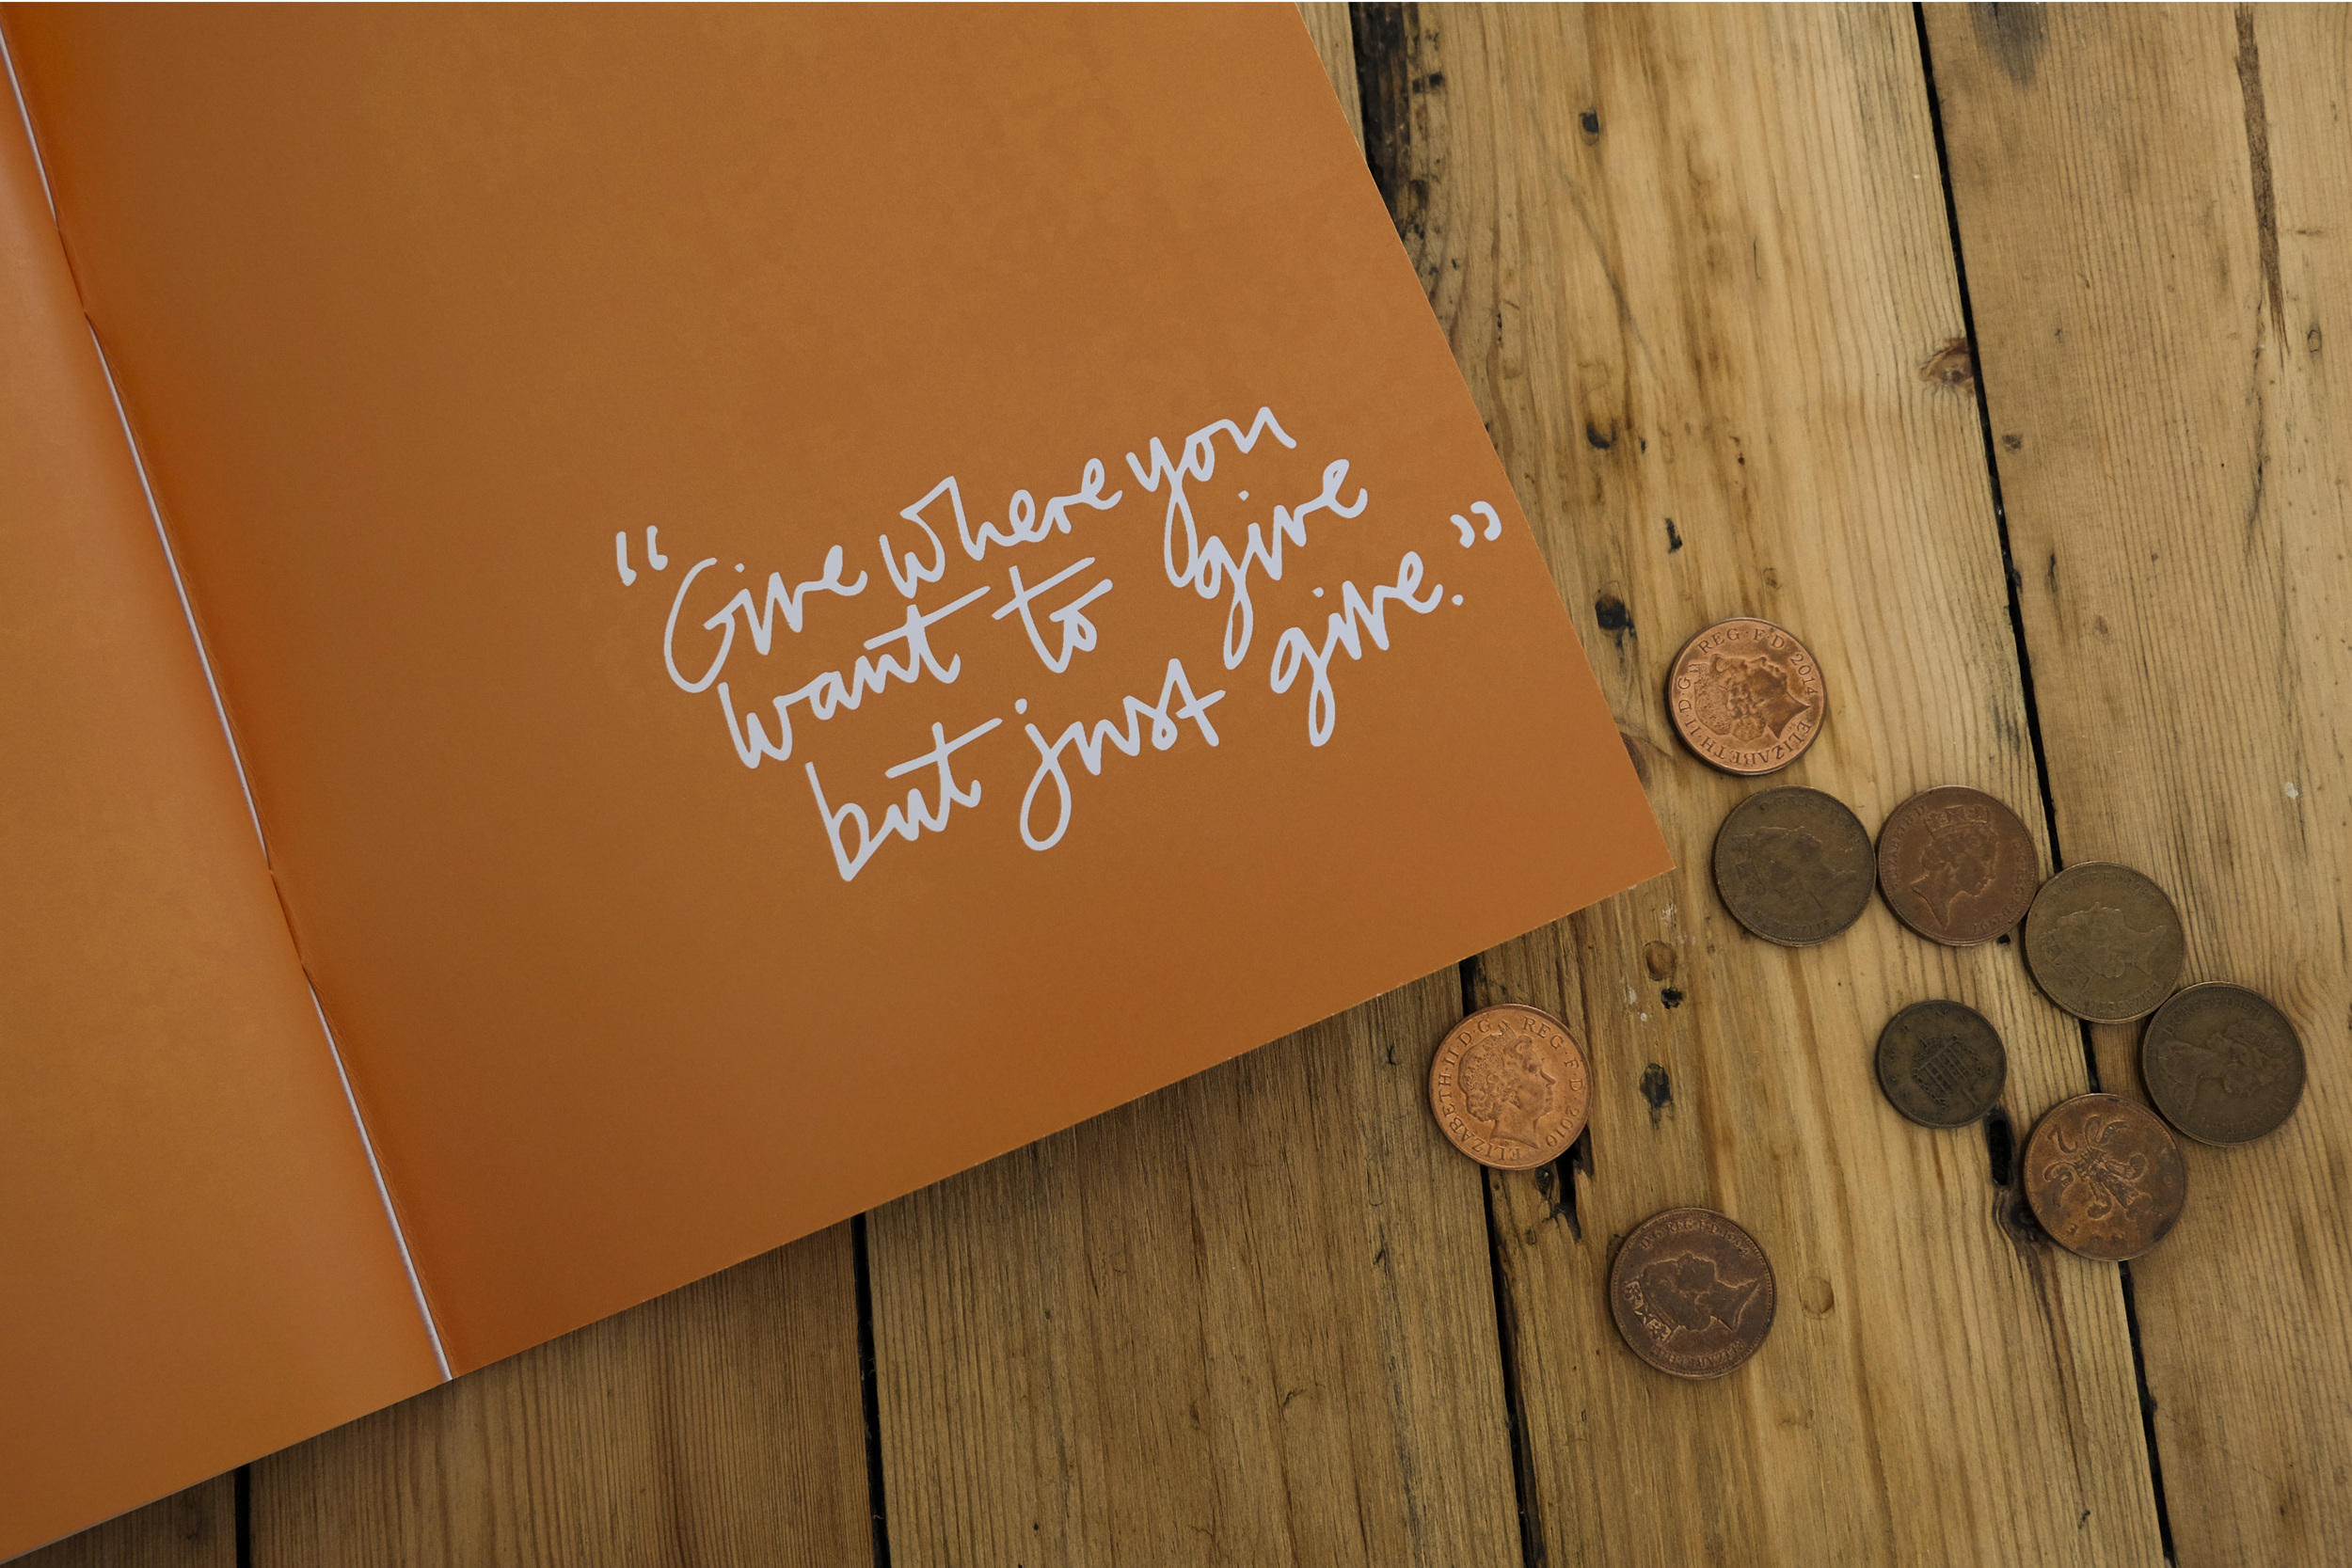 “Give where you
want to give
but just give.”
ELIZABETH·II·D·G REG·F·D 2014
ELIZABETH·II·D·G REG·F·D 2010
2